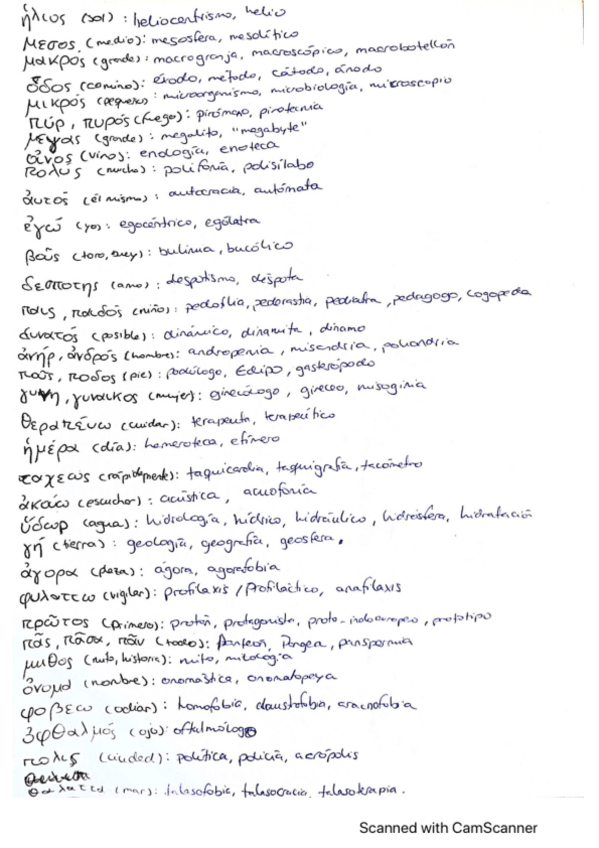 ἥλιος (sol): heliocentrismo, helio
μεσος (medio): mesosfera, mesolítico
μακρος (grande): macrogranja, macroscópico, macrobotellón
ὅδος (camino): éxodo, método, cátodo, ánodo
μικρός (pequeño): microorganismo, microbiología, microscopio
πύρ, πυρός (fuego): pirómano, pirotecnia
μεγας (grande): megalito, "megabyte"
οἶνος (vino): enología, enoteca
πολύς (mucho): polifonía, polisílabo
ἀυτός (él mismo): autocracia, autómata
ἐγώ (yo): egocéntrico, ególatra
βοῦς (toro, buey): bulimia, bucólico
δεσποτης (amo): despotismo, déspota
παις, παιδός (niño): pedofilia, pederastia, pediatra, pedagogo, logopeda
δυνατός (posible): dinámico, dinamita, dinamo
ἀνήρ, ἀνδρός (hombre): andropenia, misandria, poliandria
πούς, ποδος (pie): podólogo, Edipo, gasterópodo
γυνη, γυναικος (mujer): ginecólogo, gineceo, misoginia
θεραπέυω (cuidar): terapeuta, terapeútico
ἡμέρα (día): hemeroteca, efímero
ταχεως (rápidamente): taquicardia, taquigrafía, tacómetro
ἀκούω (escuchar): acústica, acuofonía
ὕδωρ (agua): hidrología, hídrico, hidráulico, hidrosfera, hidratación
γῆ (tierra): geología, geografía, geosfera.
ἀγορα (plaza): ágora, agorafobia
φυλαττω (vigilar): profilaxis / Profiláctico, anafilaxis
πρῶτος (primero): protón, protagonista, proto-indoeuropeo, prototipo
πᾶς, πᾶσα, πᾶν (todo): Panteón, Pangea, panspermia
μυθος (mito, historia): mito, mitología
ὀνομα (nombre): onomástica, onomatopeya
φοβεω (odiar): homofobia, claustrofobia, aracnofobia
ὀφθαλμός (ojo): oftalmólogo
πολις (ciudad): política, policía, acrópolis
θαλαττα (mar): talasofobia, talasocracia, talasoterapia.
Scanned with CamScanner